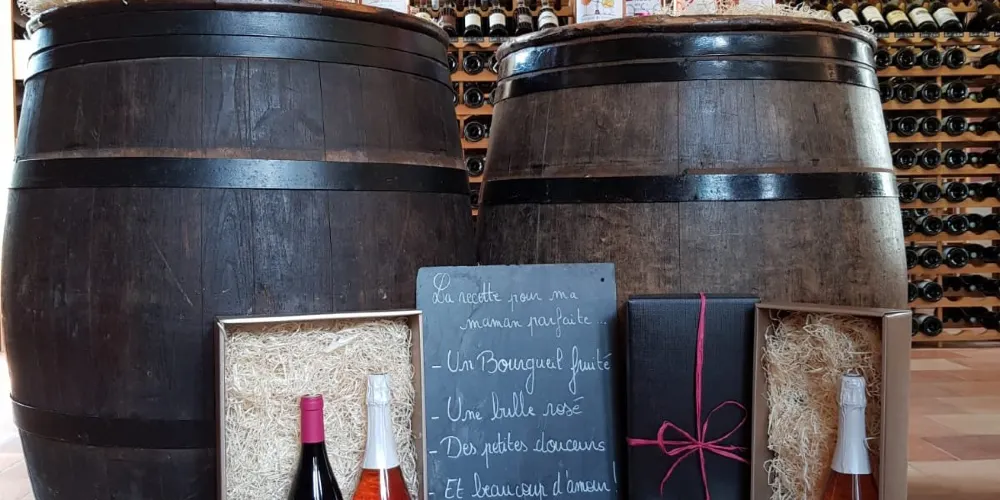 La recette pour ma
maman parfaite...
- Un Bourgueil fruité
- Une bulle rosé
- Des petites douceurs
- Et beaucoup d'amour!